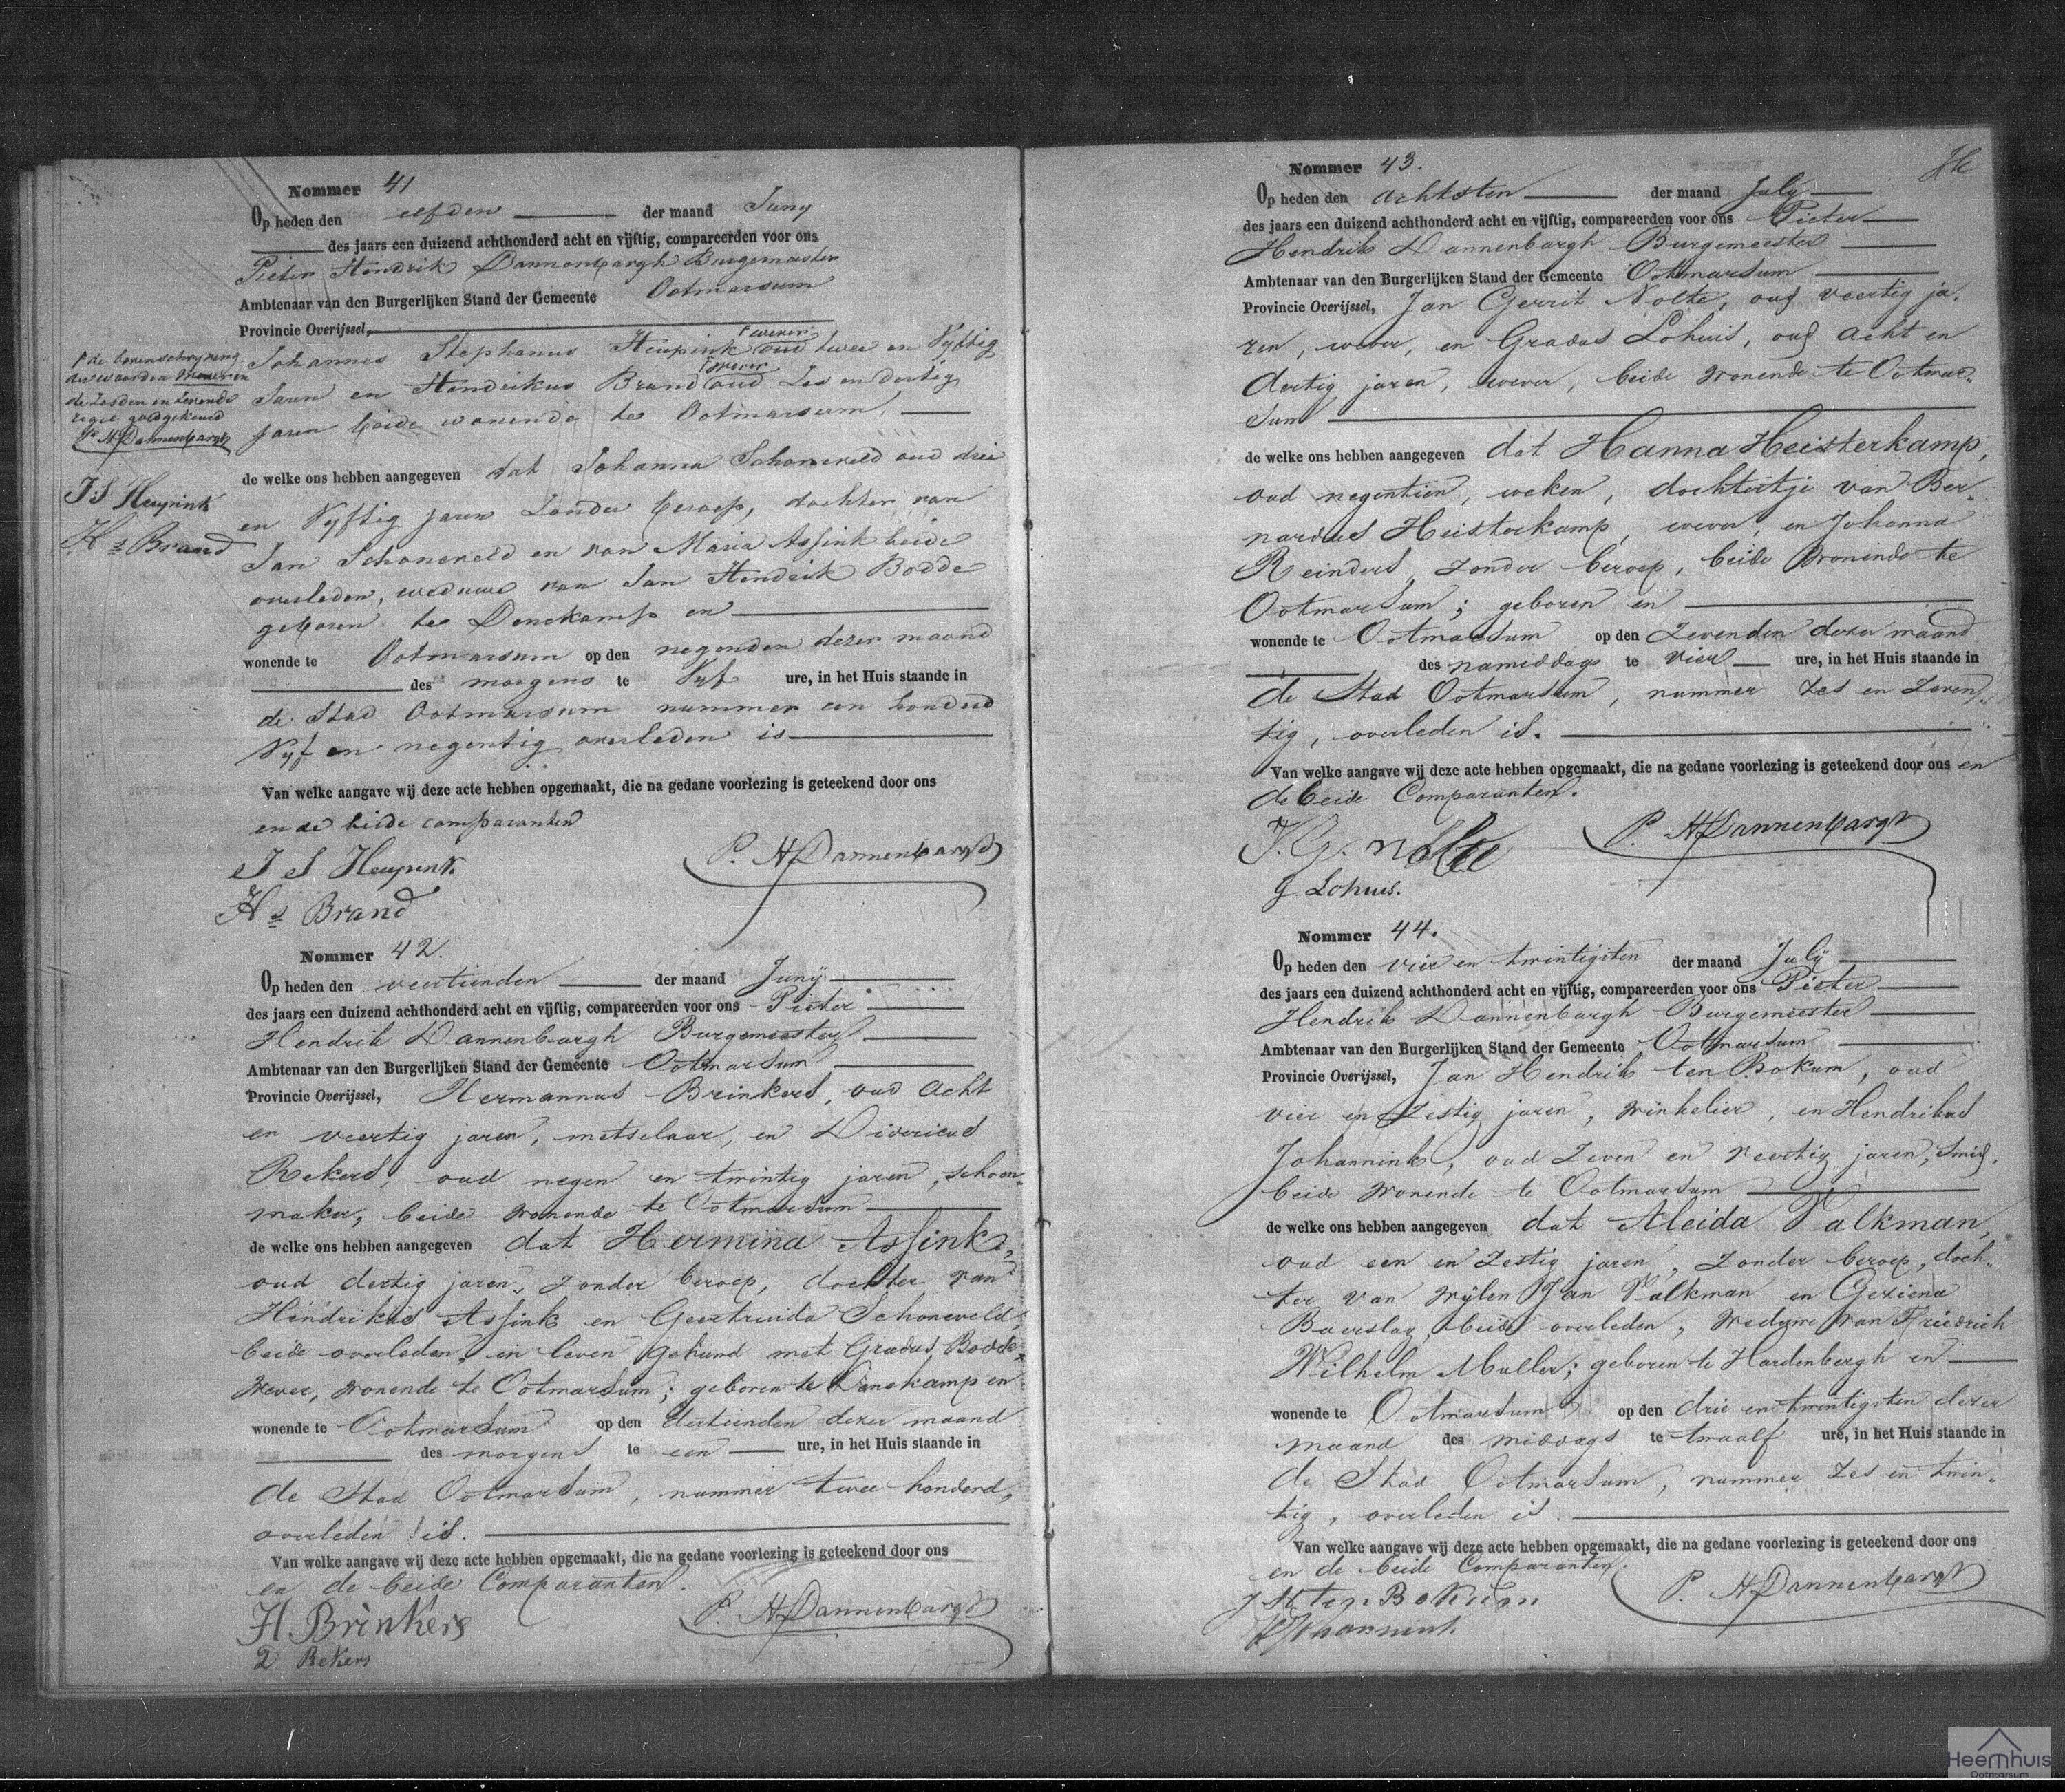 Nommer 41
Op heden den elfden der maand Juny
des jaars een duizend achthonderd acht en vijftig, compareerden voor ons
Pieter Hendrik Dannenbargh Burgemeester
Ambtenaar van den Burgerlijken Stand der Gemeente Ootmarsum
Provincie Overijssel,
Johannes Stephanus Heupink wever oud twee en Vyftig
Jaren en Hendrikus Brand wever oud Zes en dertig
Jaren beide wonende te Ootmarsum,
de bovenschryving
der woorden wever in
de Zesden en Zevende
regel goedgekeurd
P. H Dannenbargh
J. S Heupink
Hs Brand
de welke ons hebben aangegeven dat Johanna Schoneveld oud drie
en Vyftig jaren Zonder beroep, dochter van
Jan Schoneveld en van Maria Assink beide
overleden, weduwe van Jan Hendrik Bodde
geboren te Denekamp en
wonende te Ootmarsum op den negenden dezer maand
des morgens te Vyf ure, in het Huis staande in
de Stad Ootmarsum nummer een honderd
Vyf en negentig overleden is
Van welke aangave wij deze acte hebben opgemaakt, die na gedane voorlezing is geteekend door ons
en de beide comparanten
J S Heupink
P. H Dannenbargh
Hs Brand
Nommer 42.
Op heden den veertienden der maand Junij
des jaars een duizend achthonderd acht en vijftig, compareerden voor ons Pieter
Hendrik Dannenbargh Burgemeester
Ambtenaar van den Burgerlijken Stand der Gemeente Ootmarsum
Provincie Overijssel, Hermannus Brinkers, oud acht
en veertig jaren, metselaar, en Divericus
Rekers, oud negen en twintig jaren, schoen-
maker, beide wonende te Ootmarsum
de welke ons hebben aangegeven dat Hermina Assink,
oud dertig jaren, zonder beroep, dochter van
Hendrikus Assink en Geertruida Schoneveld,
beide overleden, in leven gehuwd met Gradus Bodde,
wever, wonende te Ootmarsum; geboren te Denekamp en
wonende te Ootmarsum op den dertienden dezer maand
des morgens te een ure, in het Huis staande in
de Stad Ootmarsum, nummer twee honderd,
overleden is.
Van welke aangave wij deze acte hebben opgemaakt, die na gedane voorlezing is geteekend door ons
en de beide Comparanten.
H. Brinkers
P. H Dannenbargh
D Rekers
Nommer 43.
Op heden den achtsten der maand July
des jaars een duizend achthonderd acht en vijftig, compareerden voor ons Pieter
Hendrik Dannenbargh Burgemeester
Ambtenaar van den Burgerlijken Stand der Gemeente Ootmarsum
Provincie Overijssel, Jan Gerrit Nolte, oud veertig ja-
ren, wever, en Gradus Lohuis, oud acht en
dertig jaren, wever, beide wonende te Ootmar-
sum
de welke ons hebben aangegeven dat Hanna Heisterkamp,
oud negentien, weken, dochtertje van Ber-
nardus Heisterkamp, wever, en Johanna
Reinders, zonder beroep, beide wonende te
Ootmarsum; geboren en
wonende te Ootmarsum op den zevenden dezer maand
des namiddags te vier ure, in het Huis staande in
de Stad Ootmarsum, nummer zes en zeven-
tig, overleden is.
Van welke aangave wij deze acte hebben opgemaakt, die na gedane voorlezing is geteekend door ons en
de beide Comparanten.
J. G. Nolte
P. H Dannenbargh
G Lohuis.
Nommer 44.
Op heden den vier en twintigsten der maand Julij
des jaars een duizend achthonderd acht en vijftig, compareerden voor ons Pieter
Hendrik Dannenbargh Burgemeester
Ambtenaar van den Burgerlijken Stand der Gemeente Ootmarsum
Provincie Overijssel, Jan Hendrik ten Bokum, oud
vier en zestig jaren, winkelier, en Hendrikus
Johannink, oud zeven en veertig jaren, smid,
beide wonende te Ootmarsum
de welke ons hebben aangegeven dat Aleida Valkman,
oud een en zestig jaren, zonder beroep, doch-
ter van wijlen Jan Valkman en Geziena
Baerslag, beide overleden, weduwe van Friedrich
Wilhelm Muller; geboren te Hardenbergh en
wonende te Ootmarsum op den drie en twintigsten dezer
maand des middags te twaalf ure, in het Huis staande in
de Stad Ootmarsum, nummer zes en twin-
tig, overleden is.
Van welke aangave wij deze acte hebben opgemaakt, die na gedane voorlezing is geteekend door ons
en de beide Comparanten.
J H ten Bokum
P. H Dannenbargh
H Johannink.
Heemhuis
Ootmarsum